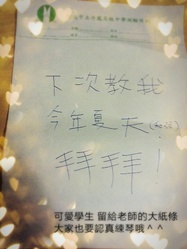 下次教我
今年夏天
拜拜！
可愛學生 留給老師的大紙條
大家也要認真練琴哦＾＾